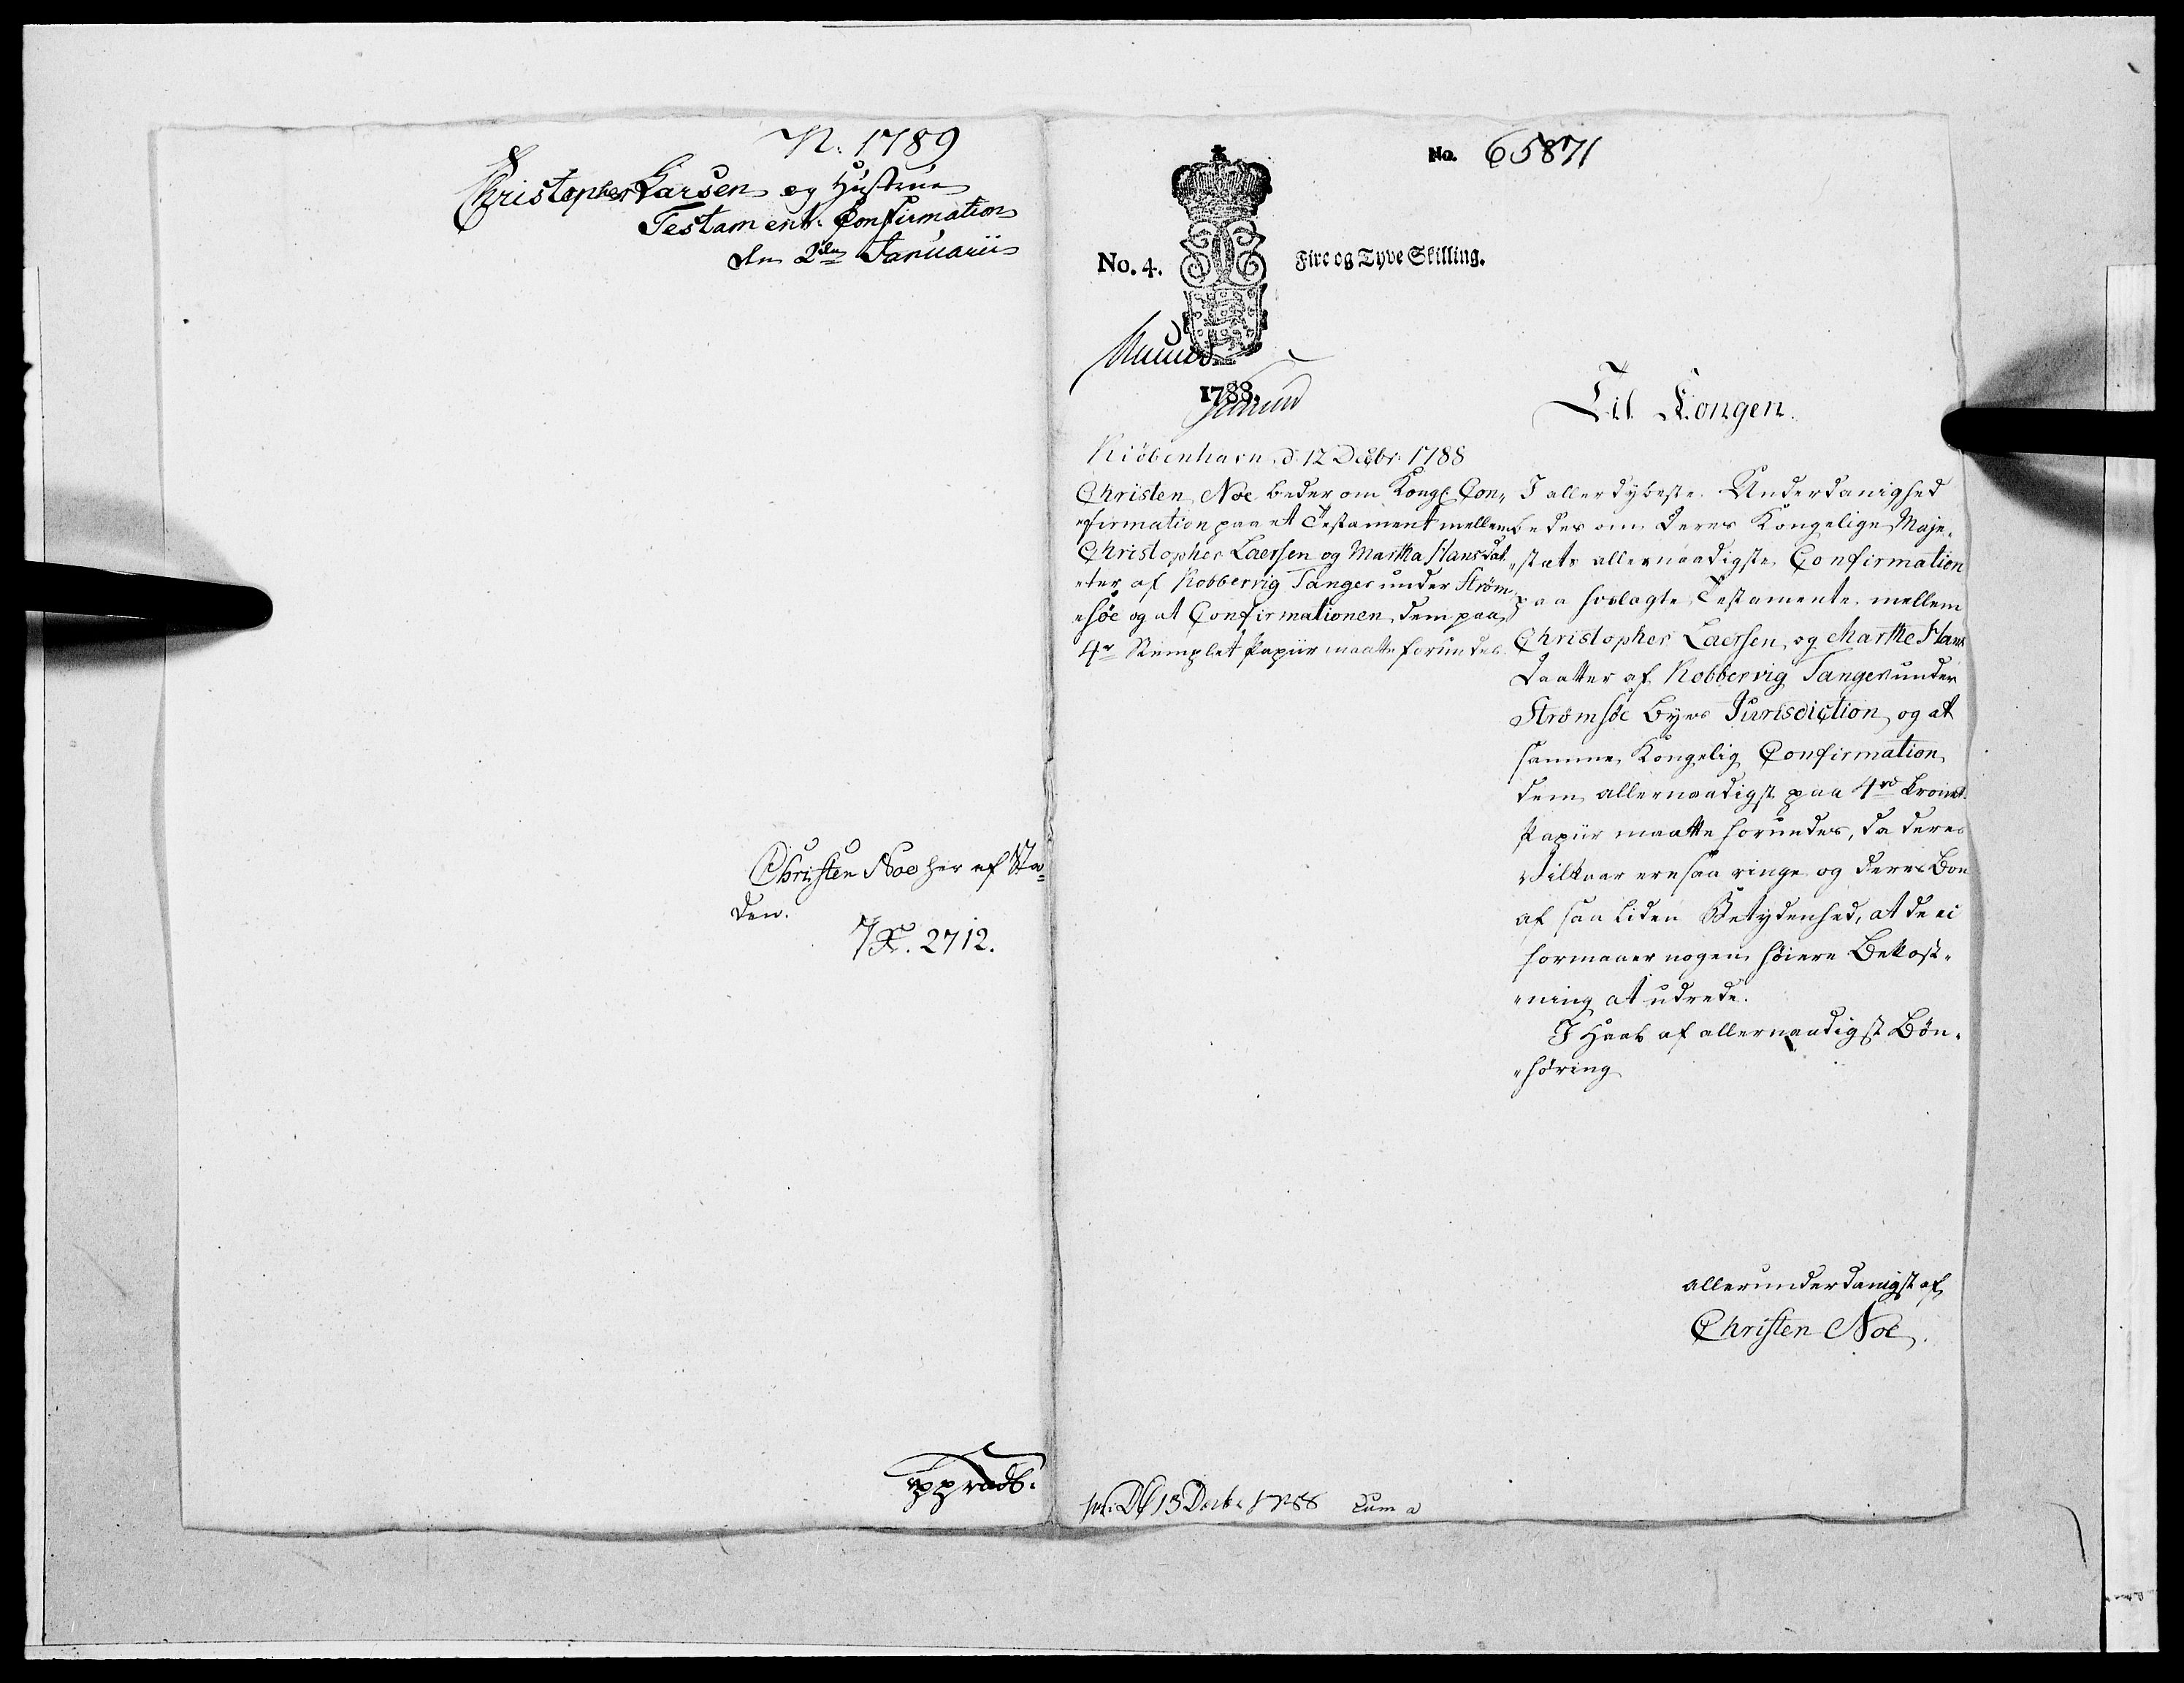 N. 1789
Christopher Larsen og Hustrue
Testament: Confirmation
den 2den Januarii
Christen Noe her af Sta=
den.
2712.
No. 65871
No. 4.
Fire og Tyve Skilling.
1788.
Til Kongen.
Kiöbenhavn d: 12 Decbr: 1788
Christen Noe beder om Kongl: Con„
„firmation paa et Testament mellem
Christopher Laersen og Martha Hansdat
„ter af Kobbervig Tanger under Ström„
„söe og at Confirmationen dem paa
4rd Stemplet Papiir maatte forundes.
I allerdybeste Underdanighed
bedes om Deres Kongelige Maje„
„stæts allernaadigste Confirmation
paa hoslagte Testamente mellem
Christopher Laersen og Marthe Hans
Daatter af Kobbervig Tanger under
Strömsöe Byes Jurisdiction, og at
samme Kongelig Confirmation
dem allernaadigst paa 4rd
Papiir maatte forundes, da deres
Vilkaar ere saa ringe og deres Boe
af saa liden Betydenhed, at de ei
formaaer nogen höiere Bekost„
„ning at udrede.
I Haab af allernaadigst Bön„
„höring
allerunderdanigst af
Christen Noe.
13 Decbr 1788